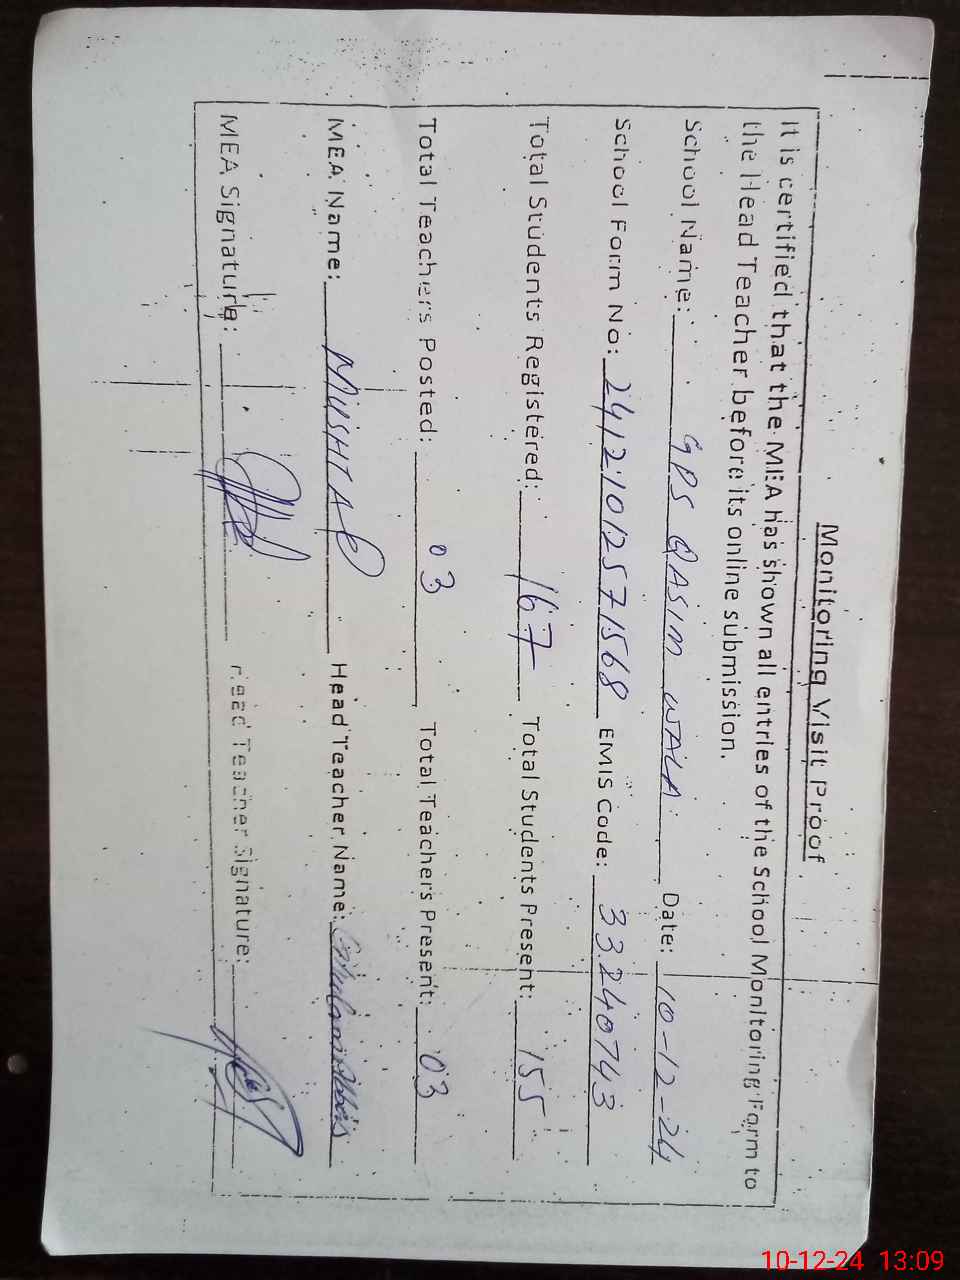 Monitoring Visit Proof
It is certified that the MEA has shown all entries of the School Monitoring Form to
the Head Teacher before its online submission.
School Name: GPS QASIM WALA Date: 10-12-24
School Form No: 24121012571568 EMIS Code: 33240743
Total Students Registered: 167 Total Students Present: 155
Total Teachers Posted: 03 Total Teachers Present: 03
MEA Name: MUSHTAQ Head Teacher Name: Ghulam Abbas
MEA Signature: Head Teacher Signature:
10-12-24 13:09